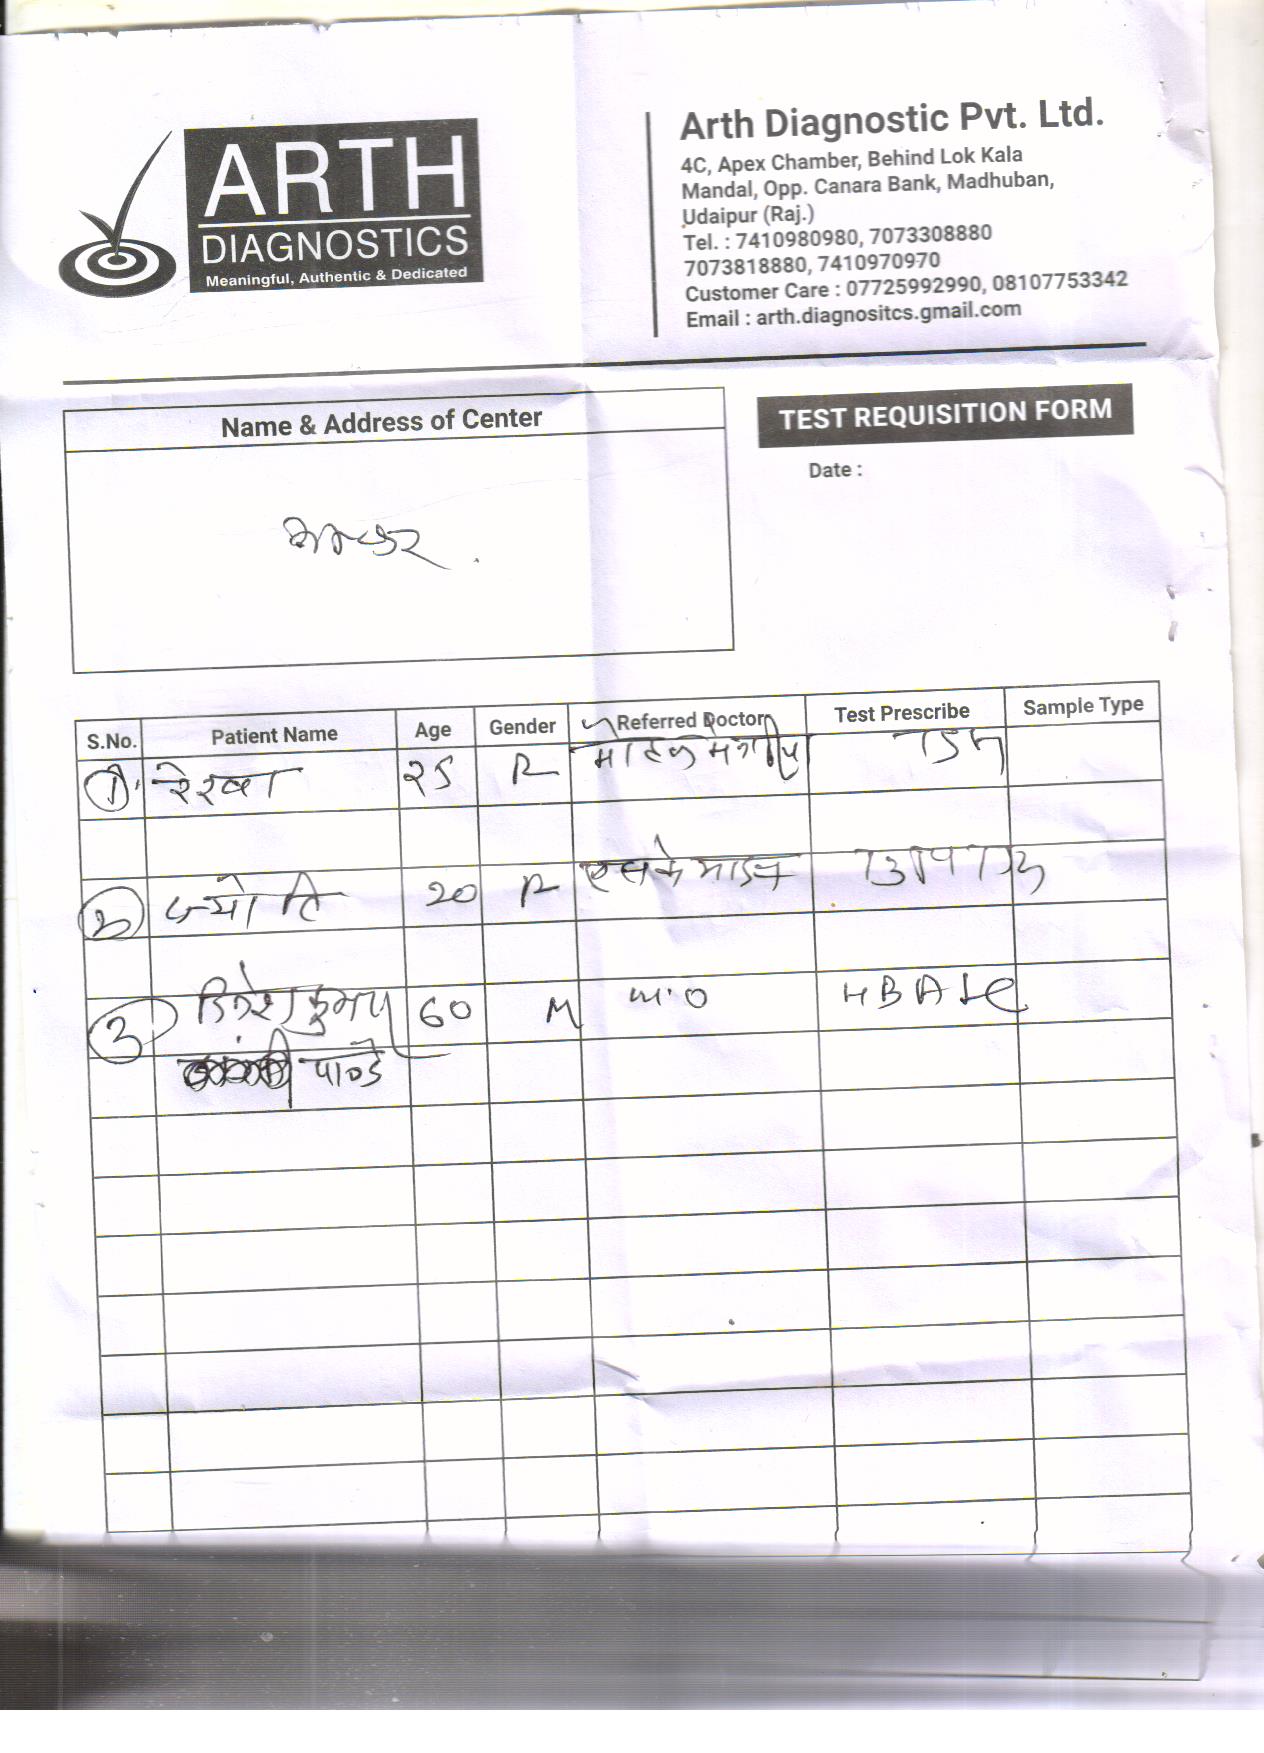 ARTH
DIAGNOSTICS
Meaningful, Authentic & Dedicated
Arth Diagnostic Pvt. Ltd.
4C, Apex Chamber, Behind Lok Kala
Mandal, Opp. Canara Bank, Madhuban,
Udaipur (Raj.)
Tel. : 7410980980, 7073308880
7073818880, 7410970970
Customer Care : 07725992990, 08107753342
Email : arth.diagnositcs.gmail.com
Name & Address of Center
TEST REQUISITION FORM
Date :
S.No. Patient Name Age Gender Referred Doctor Test Prescribe Sample Type
1 रेखा २5
2 ज्योति 20
3 कुमार 60 M M.O HBA1C
पान्डे